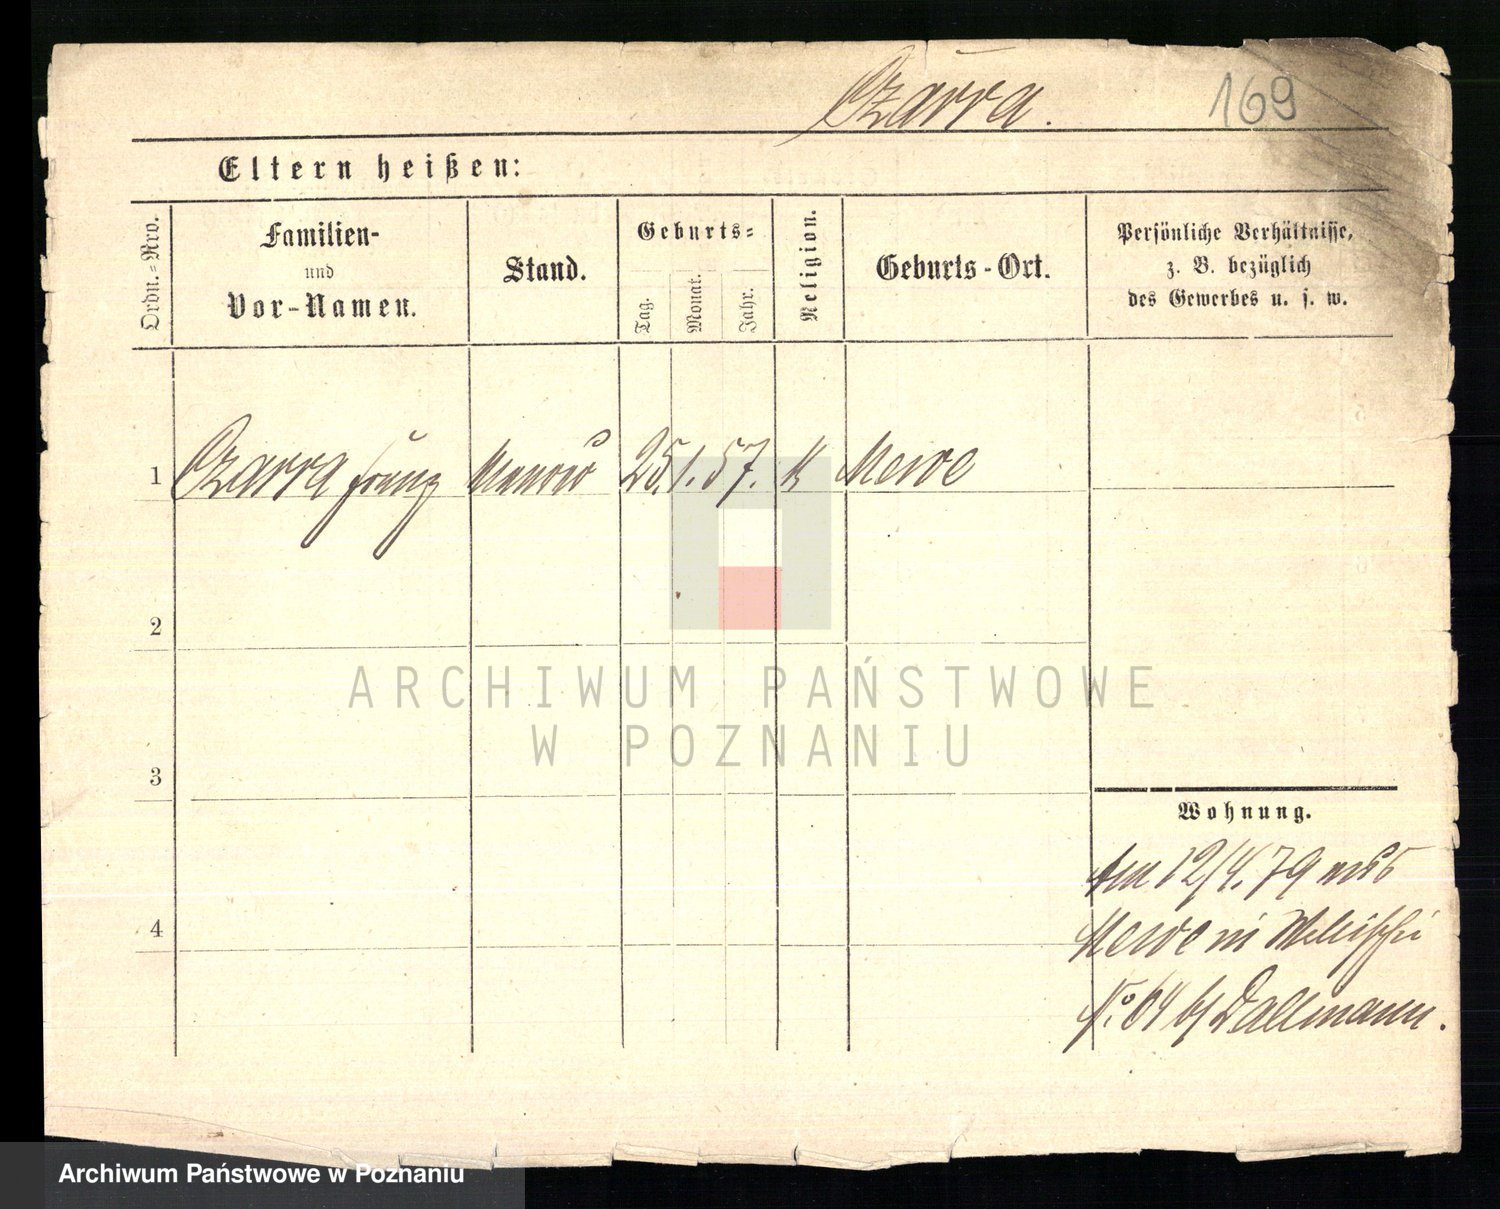 Czarra.
169
Eltern heißen:
Ordn.-Nro.
Familien-
und
Vor-Namen.
Stand.
Geburts-
Tag.
Monat.
Jahr.
Religion.
Geburts-Ort.
Persönliche Verhältnisse,
z. B. bezüglich
des Gewerbes u. s. w.
1 Czarra Franz Maurer 25. 1. 57. k Mewe
2
3
4
Wohnung.
Am 12/4. 79 aus
Mewe in
No. 64 b/ Dallmann.
ARCHIWUM PAŃSTWOWE
W POZNANIU
Archiwum Państwowe w Poznaniu